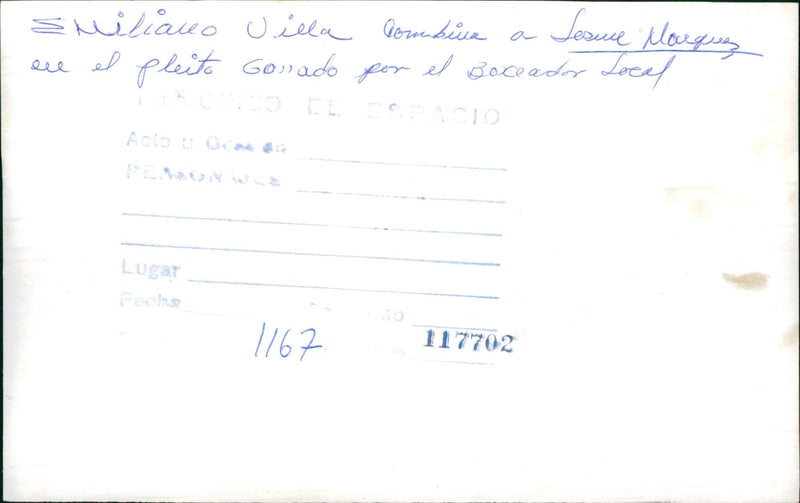 Emiliano Villa Combina a Marquez
en el pleito Gonado por el Boxeador Local
PERIODICO EL ESPACIO
Acto u Ocasion
PERSONAJES
Lugar
Fecha
1167
117702